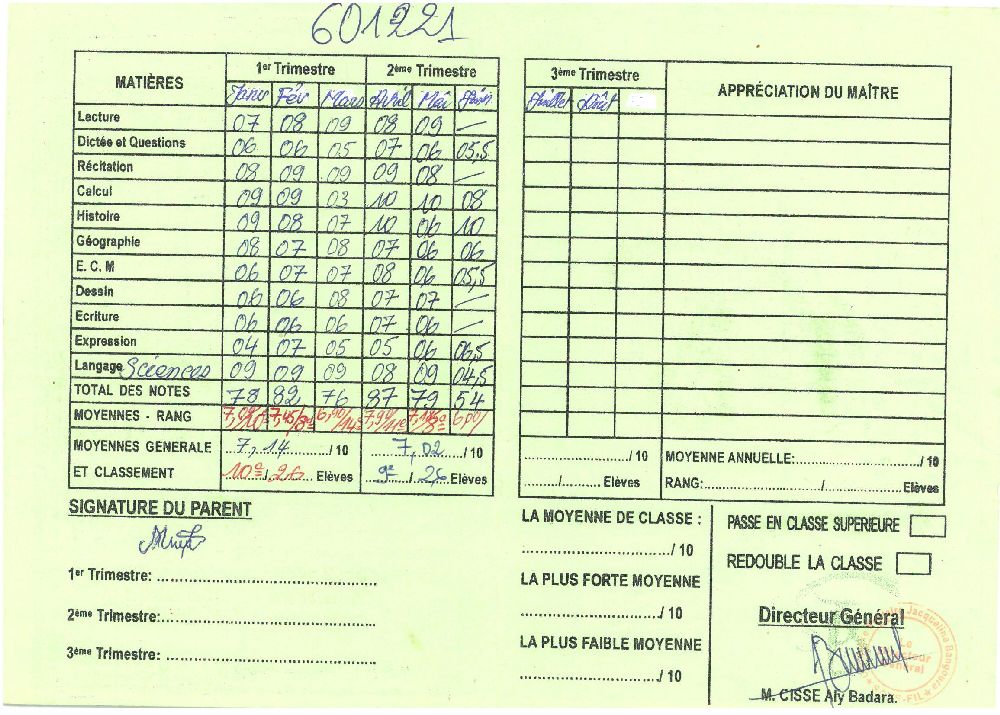 601221
MATIÈRES 1er Trimestre 2ème Trimestre
Janv Fév Mars Avril Mai Juin
Lecture 07 08 09 08 09 —
Dictée et Questions 06 06 05 07 06 05,5
Récitation 08 09 09 09 08 —
Calcul 09 09 03 10 10 08
Histoire 09 08 07 10 06 10
Géographie 08 07 08 07 06 06
E. C. M 06 07 07 08 06 05,5
Dessin 06 06 08 07 07 —
Ecriture 06 06 06 07 06 —
Expression 04 07 05 05 06 06,5
Langage Sciences 09 09 09 08 09 04,5
TOTAL DES NOTES 78 82 76 87 79 54
MOYENNES - RANG
MOYENNES GENERALE 7,14 /10 7,02 /10
ET CLASSEMENT 10e/26 Elèves 9e/26 Elèves
SIGNATURE DU PARENT
1er Trimestre:
2ème Trimestre:
3ème Trimestre:
3ème Trimestre APPRÉCIATION DU MAÎTRE
Juillet Août
/10 MOYENNE ANNUELLE: /10
/ Elèves RANG: / Elèves
LA MOYENNE DE CLASSE :
/10
LA PLUS FORTE MOYENNE
/10
LA PLUS FAIBLE MOYENNE
/10
PASSE EN CLASSE SUPERIEURE
REDOUBLE LA CLASSE
Directeur Général
M. CISSE Aly Badara.